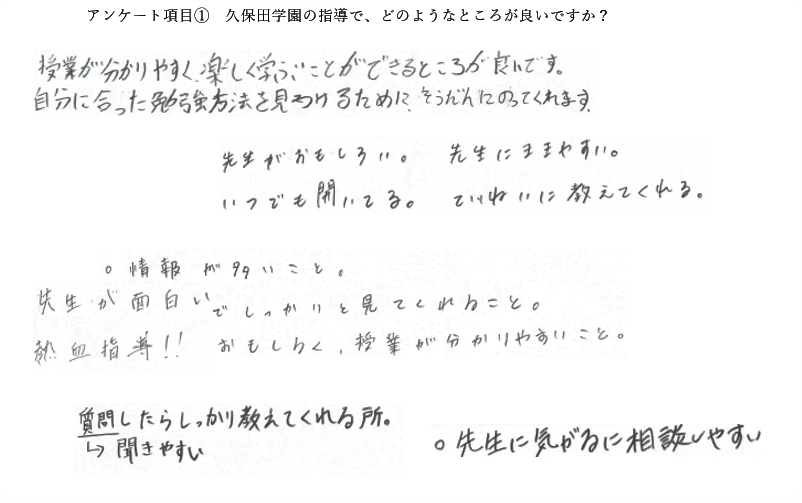 アンケート項目① 久保田学園の指導で、どのようなところが良いですか？
授業が分かりやすく、楽しく学ぶことができるところが良いです。
自分に合った勉強方法を見つけるために、そうだんにのってくれます。
先生がおもしろい。 先生にききやすい。
いつでも開いてる。 ていねいに教えてくれる。
○ 情報が多いこと。
先生が面白いでしっかりと見てくれること。
熱血指導!! おもしろく、授業が分かりやすいこと。
質問したらしっかり教えてくれる所。
↳ 聞きやすい
○ 先生に気がるに相談しやすい